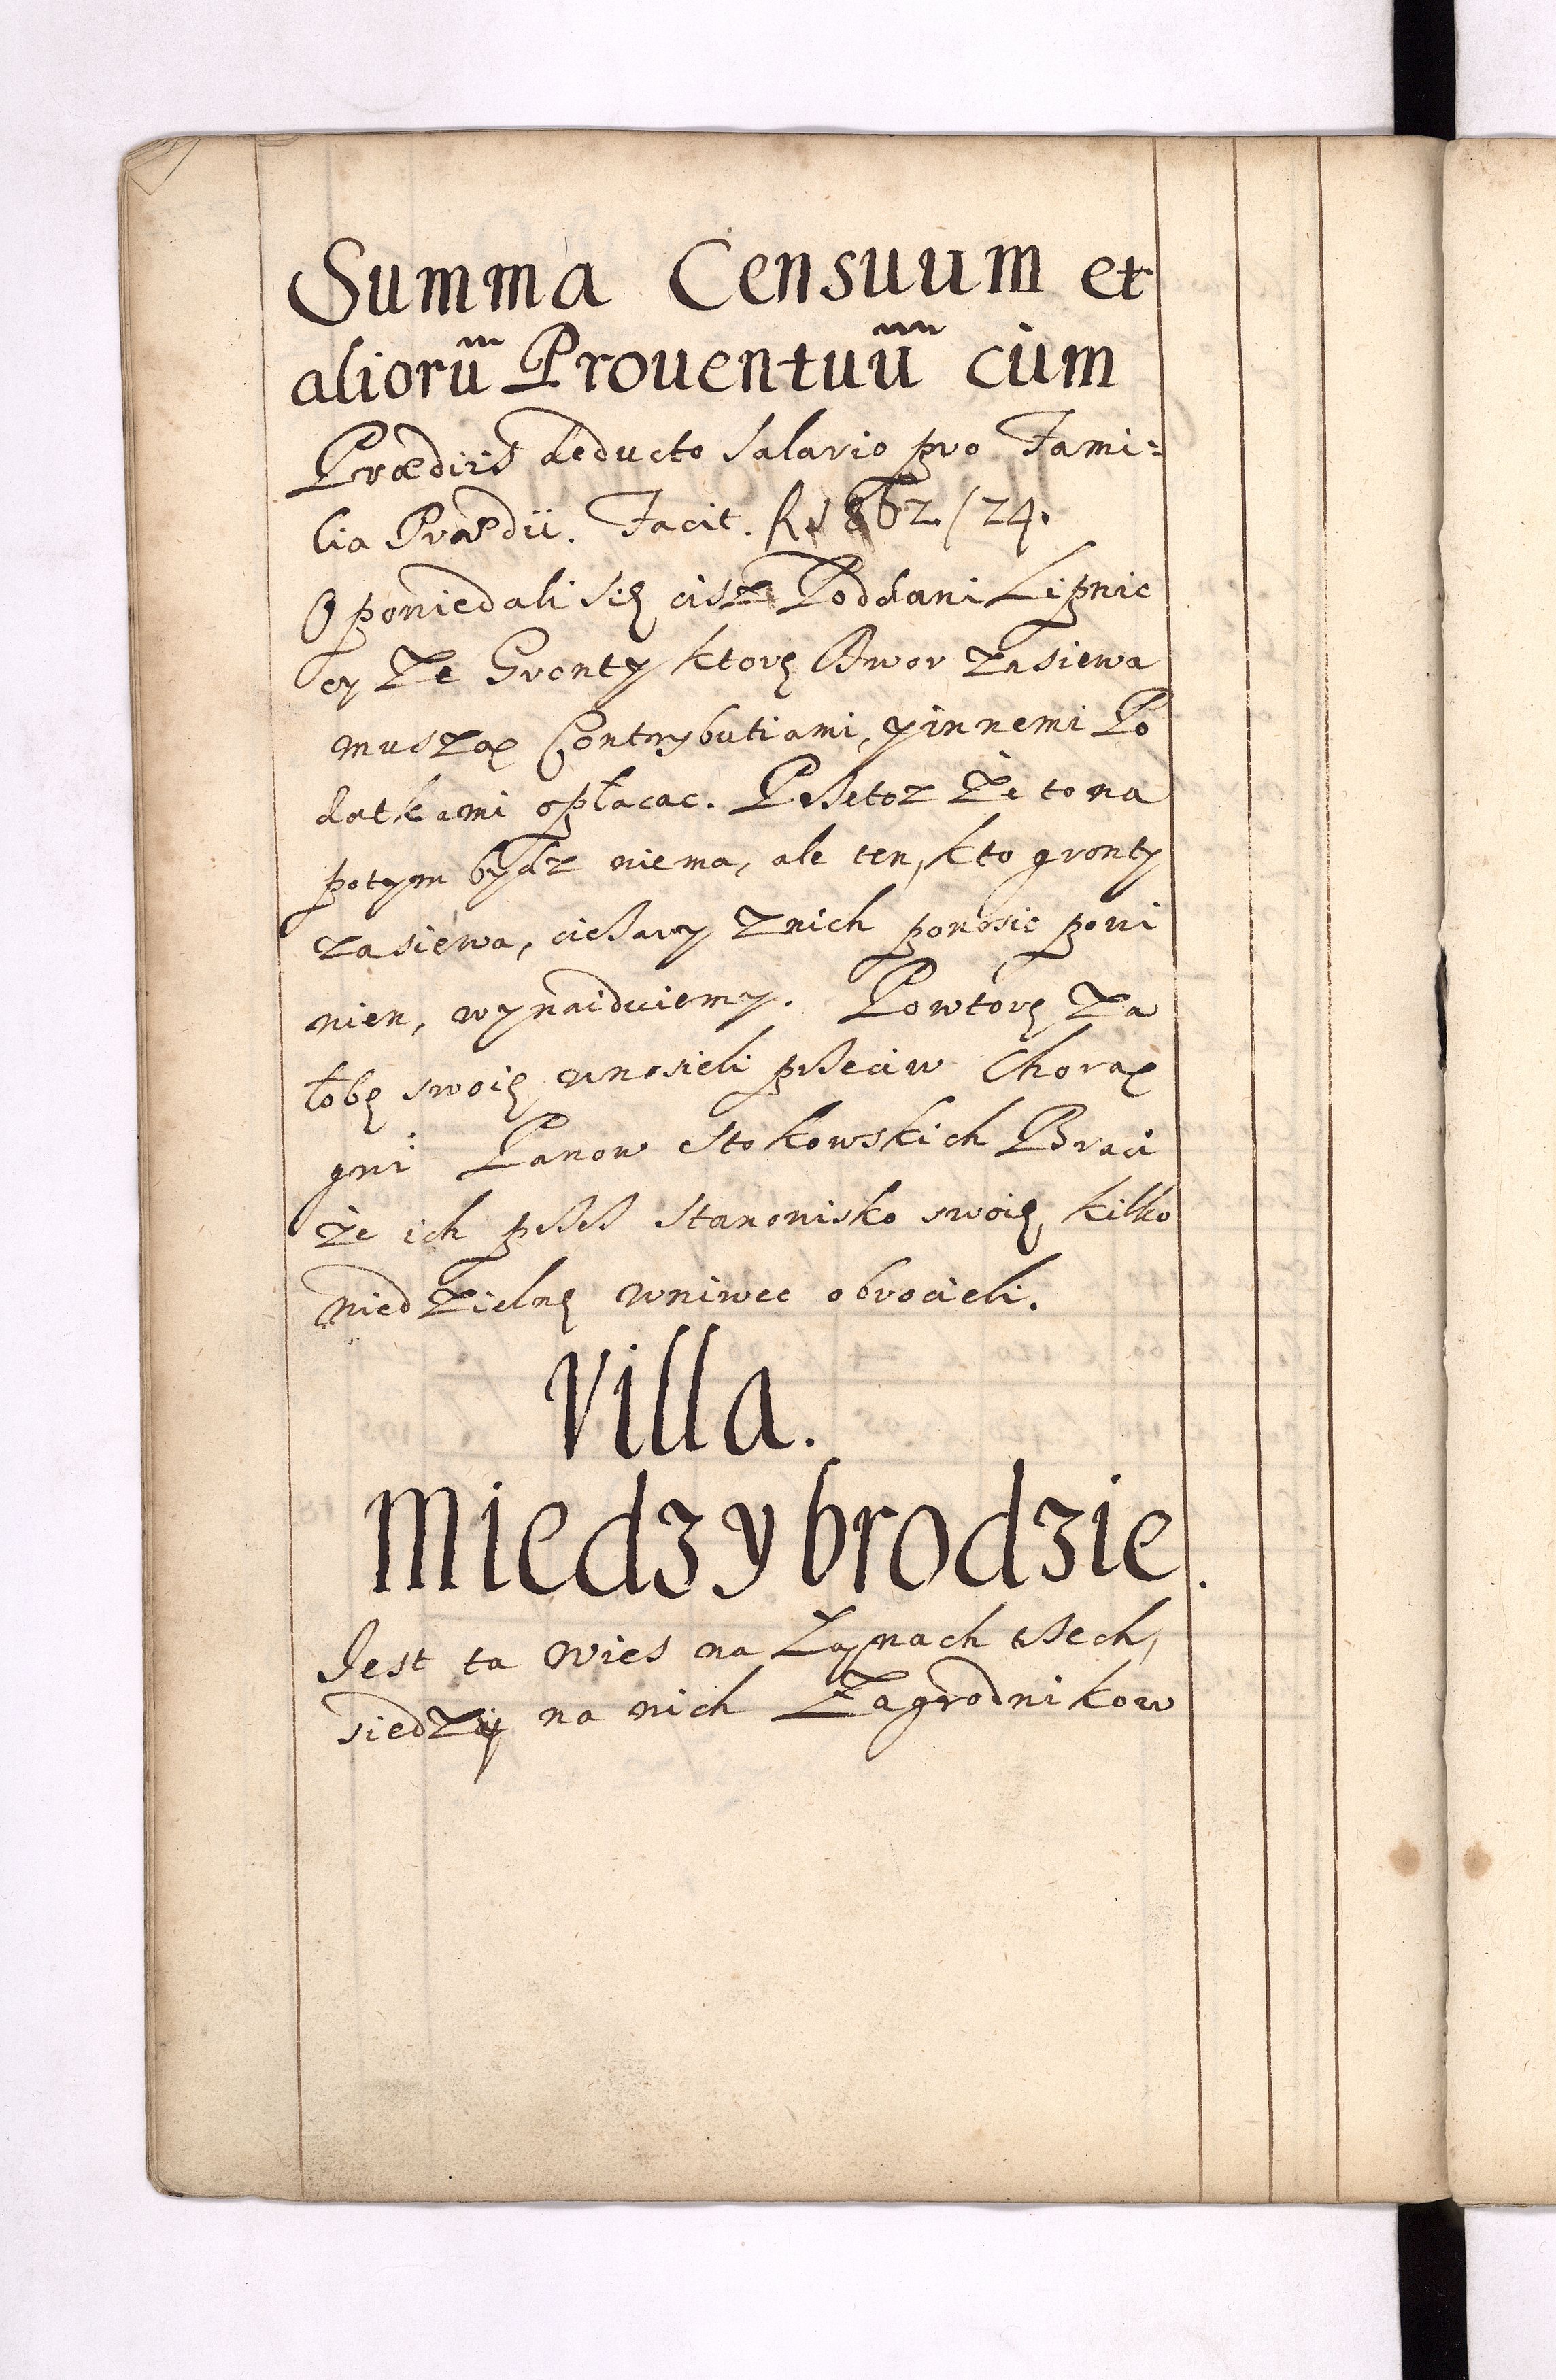 Summa Censuum et
aliorū Prouentuū cum
Prædiis deducto Salario pro Fami=
lia Prædii. Facit. fl 1862/24.
Oponiedali się cisz Poddani Lipnic
cy Że Gronty ktorę Dwor zasiewa
muszą Contrybutiami, y innemi Po
datkami opłacac. Pssetoz Że to na
potym bydz niema, ale ten, kto gronty
zasiewa, cięssary znich ponosic powi
nien, wynaiduiemy. Powtórę Ża
łobę swoię wnosieli psseciw Chorą
gni Panow Stokowskich Braci
że ich pssess Stanowisko swoię, kilko
niedzielnę wniwec obrocieli.
Villa.
Miedzybrodzie.
Jest ta wies na Łąnach tssech,
siedzy na nich Zagrodnikow